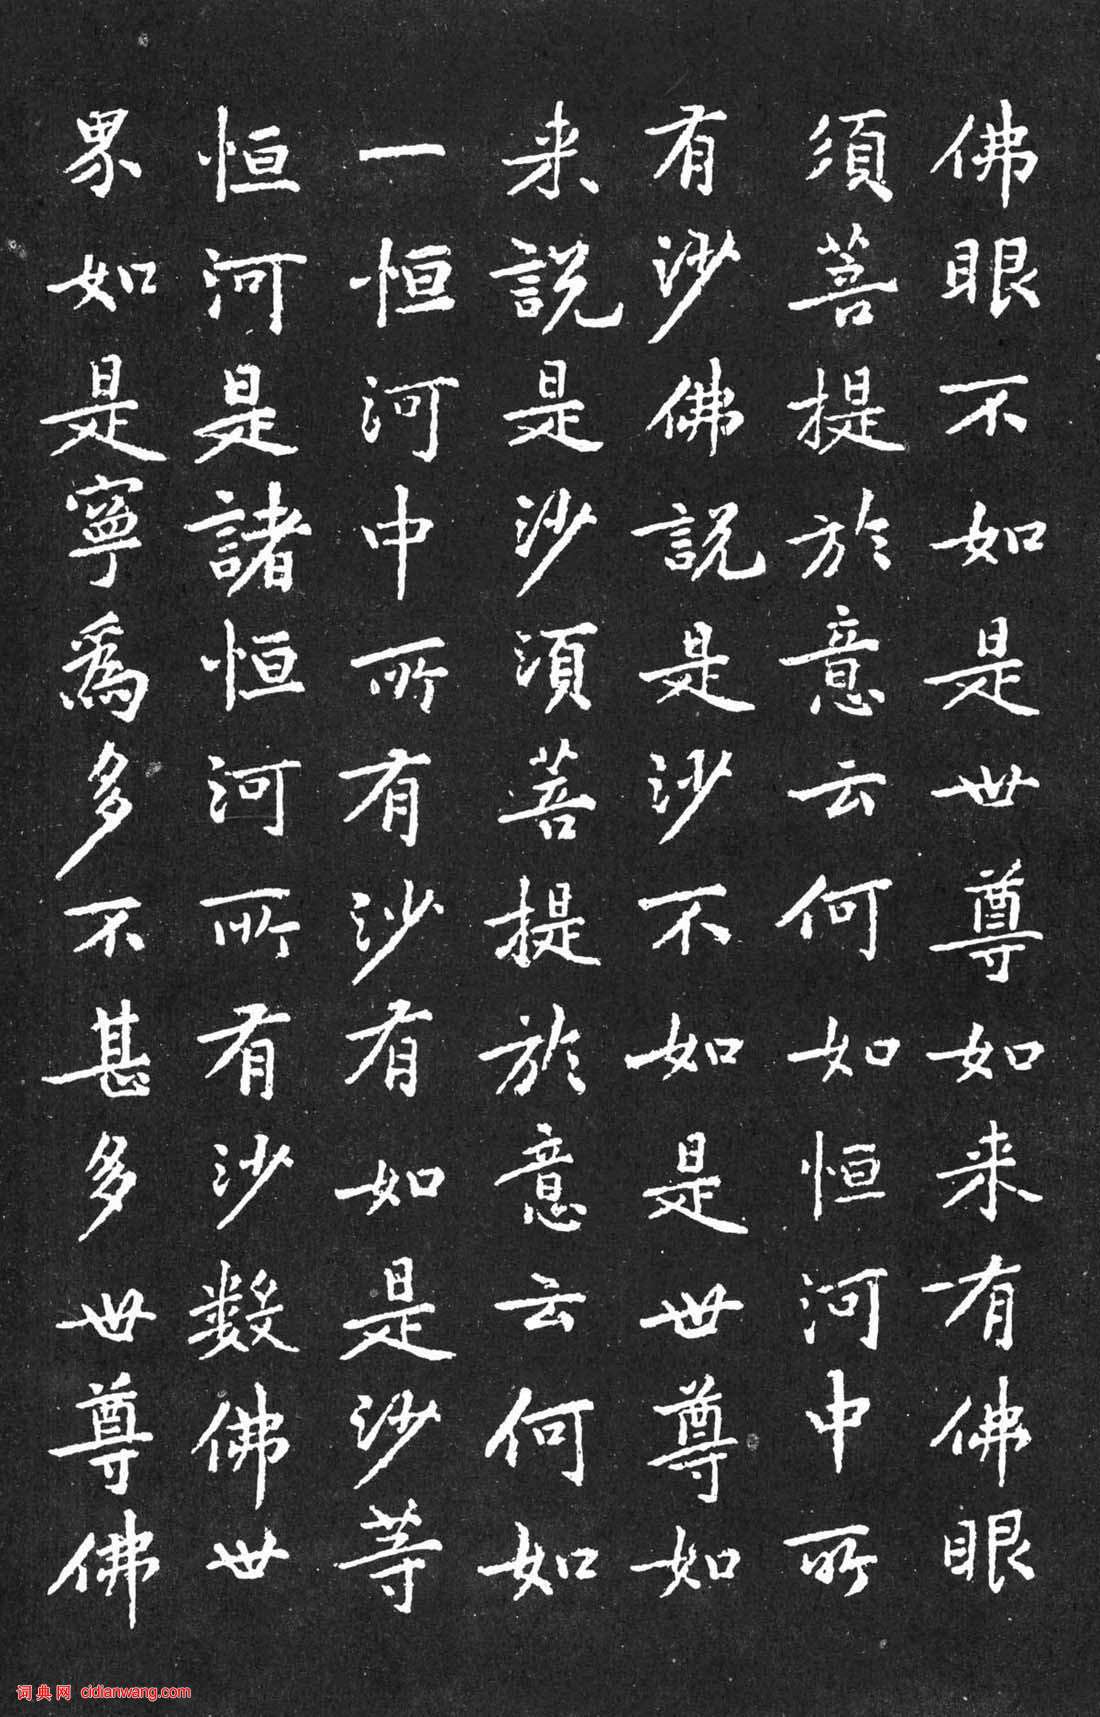 佛眼不如是世尊如来有佛眼
須菩提於意云何如恒河中所
有沙佛説是沙不如是世尊如
来説是沙須菩提於意云何如
一恒河中所有沙有如是沙等
恒河是諸恒河所有沙數佛世
界如是寧爲多不甚多世尊佛
词典网 cidianwang.com